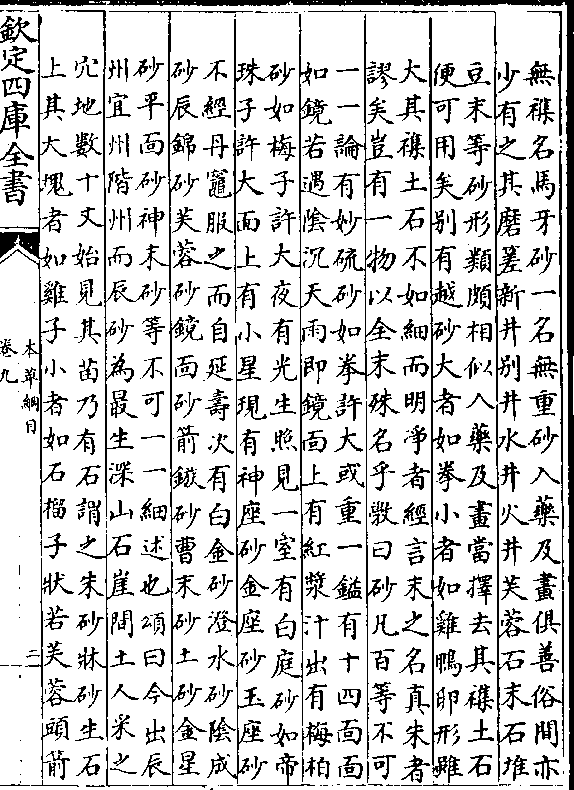 無襍名馬牙砂一名無重砂入藥及畫俱善俗間亦
少有之其磨嵳新井别井水井火井芙蓉石末石堆
豆末等砂形類頗相似入藥及畫當擇去其襍土石
便可用矣别有越砂大者如拳小者如雞鴨卵形雖
大其襍土石不如細而明凈者經言末之名真朱者
謬矣豈有一物以全末殊名乎斆曰砂凡百等不可
一一論有妙硫砂如拳許大或重一鎰有十四面面
如鏡若遇陰沉天雨即鏡面上有紅漿汁出有梅柏
砂如梅子許大夜有光生照見一室有白庭砂如帝
珠子許大面上有小星現有神座砂金座砂玉座砂
不經丹竈服之而自延壽次有白金砂澄水砂陰成
砂辰錦砂芙蓉砂鏡面砂箭鏃砂曹末砂土砂金星
砂平面砂神末砂等不可一一細述也頌曰今出辰
州宜州階州而辰砂為最生深山石崖間土人采之
穴地數十丈始見其苗乃有石謂之朱砂牀砂生石
上其大塊者如雞子小者如石榴子狀若芙蓉頭箭
欽定四庫全書
本草綱目
卷九
三